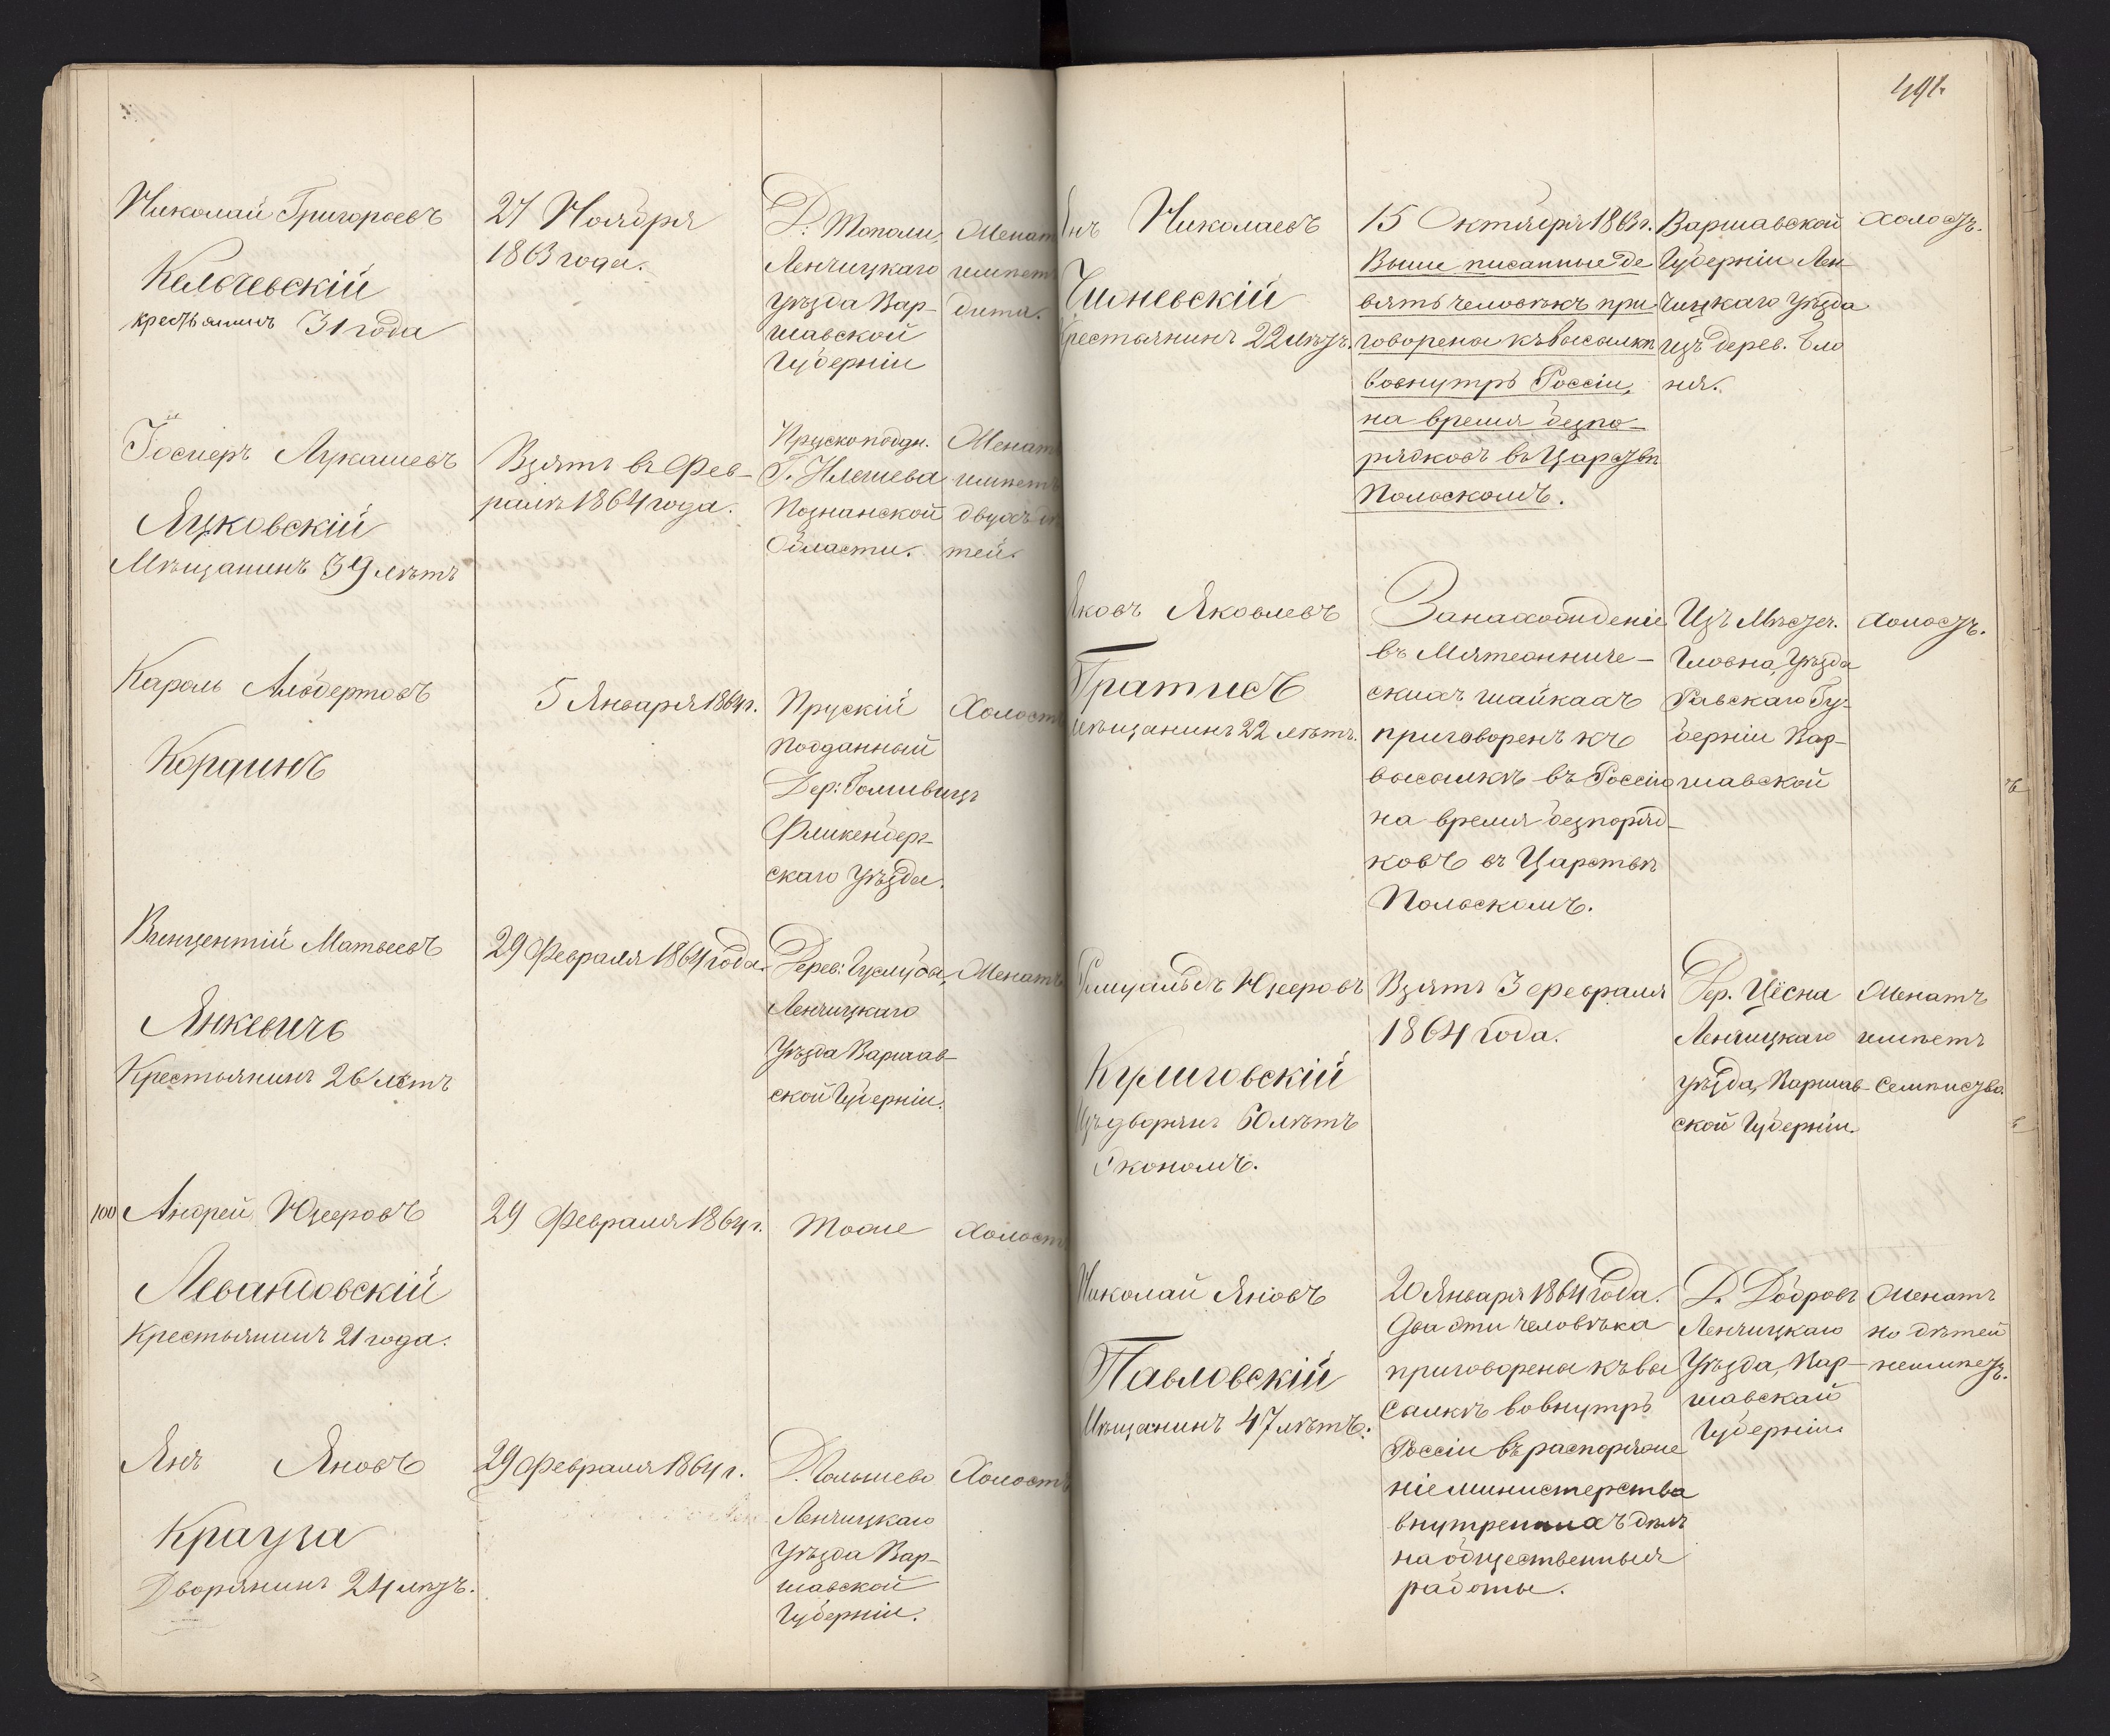 Николай Григорьевъ
Кельчевскій
крестьянинъ 31 года
27 Ноября
1863 года.
Д: Топали,
Ленчицкаго
уѣзда Вар-
шавской
Губерніи
Женат
имѣет
дитя.
Госперъ Лукашевъ
Яцковскій
Мѣщанинъ 39 лѣтъ
Взятъ въ Фев-
ралѣ 1864 года.
Прускоподдн.
Г. Плешева
Познанской
Области.
Женат
имѣетъ
двухъ дѣ
тей.
Кароль Альбертовъ
Кординъ
5 Января 1864 г.
Прускій
подданный
Дер:
скаго уѣзда.
Холостъ
Винцентій Матвеевъ
Янкевичъ
Крестьянинъ 26 лѣтъ
29 Февраля 1864 года.
Дерев:
Ленчицкаго
Уѣзда Варшав-
ской Губерніи.
Женатъ
100 Андрей Юзефовъ
Левандовскій
Крестьянинъ 21 года.
29 Февраля 1864 г.
Тоже
Холостъ
Янъ Яновъ
Крауза
Дворянинъ 24 лѣтъ.
29 Февраля 1864 г.
Д. Голышево
Ленчицкаго
Уѣзда Вар-
шавской
Губерніи.
Холостъ
491.
Янъ Николаевъ
Чижневскій
Крестьянинъ 22 лѣтъ.
15 Октября 1863 г.
Выше писанные де
вять человѣкъ при
говорены къ высылкѣ
вовнутрь Россіи,
на время безпо-
рядковъ въ Царствѣ
Польскомъ.
Варшавской
Губерніи Лен
чицкаго Уѣзда
изъ дерев. Бло
ня.
Холостъ.
Яковъ Яковлевъ
Гратисъ
Мѣщанинъ 22 лѣтъ.
За нахожденіе
въ Мятежниче-
скихъ шайкахъ
приговоренъ къ
высылкѣ въ Россію
на время безпоряд-
ковъ въ Царствѣ
Польскомъ.
Изъ Мѣстеч.
Гловна, Уѣзда
Равскаго Гу-
берніи Вар-
шавской
Холостъ.
Ромуальдъ Юзефовъ
Кулиговскій
Изъ дворянъ 60 лѣтъ
Экономъ.
Взятъ 3 февраля
1864 года.
Дер. Цёсна
Ленчицкаго
уѣзда, Варшав-
ской Губерніи.
Женатъ
имѣетъ
Семѣйство.
Николай Яновъ
Павловскій
Мѣщанинъ 47 лѣтъ.
20 Января 1864 года.
Два эти человѣка
приговорены къ вы
сылкѣ вовнутрь
Россіи въ распоряже
ніе министерства
внутреннихъ дѣлъ
на общественныя
работы.
Д. Добровъ
Ленчицкаго
Уѣзда, Вар-
шавской
Губерніи
Женатъ
но дѣтей
неимѣетъ.